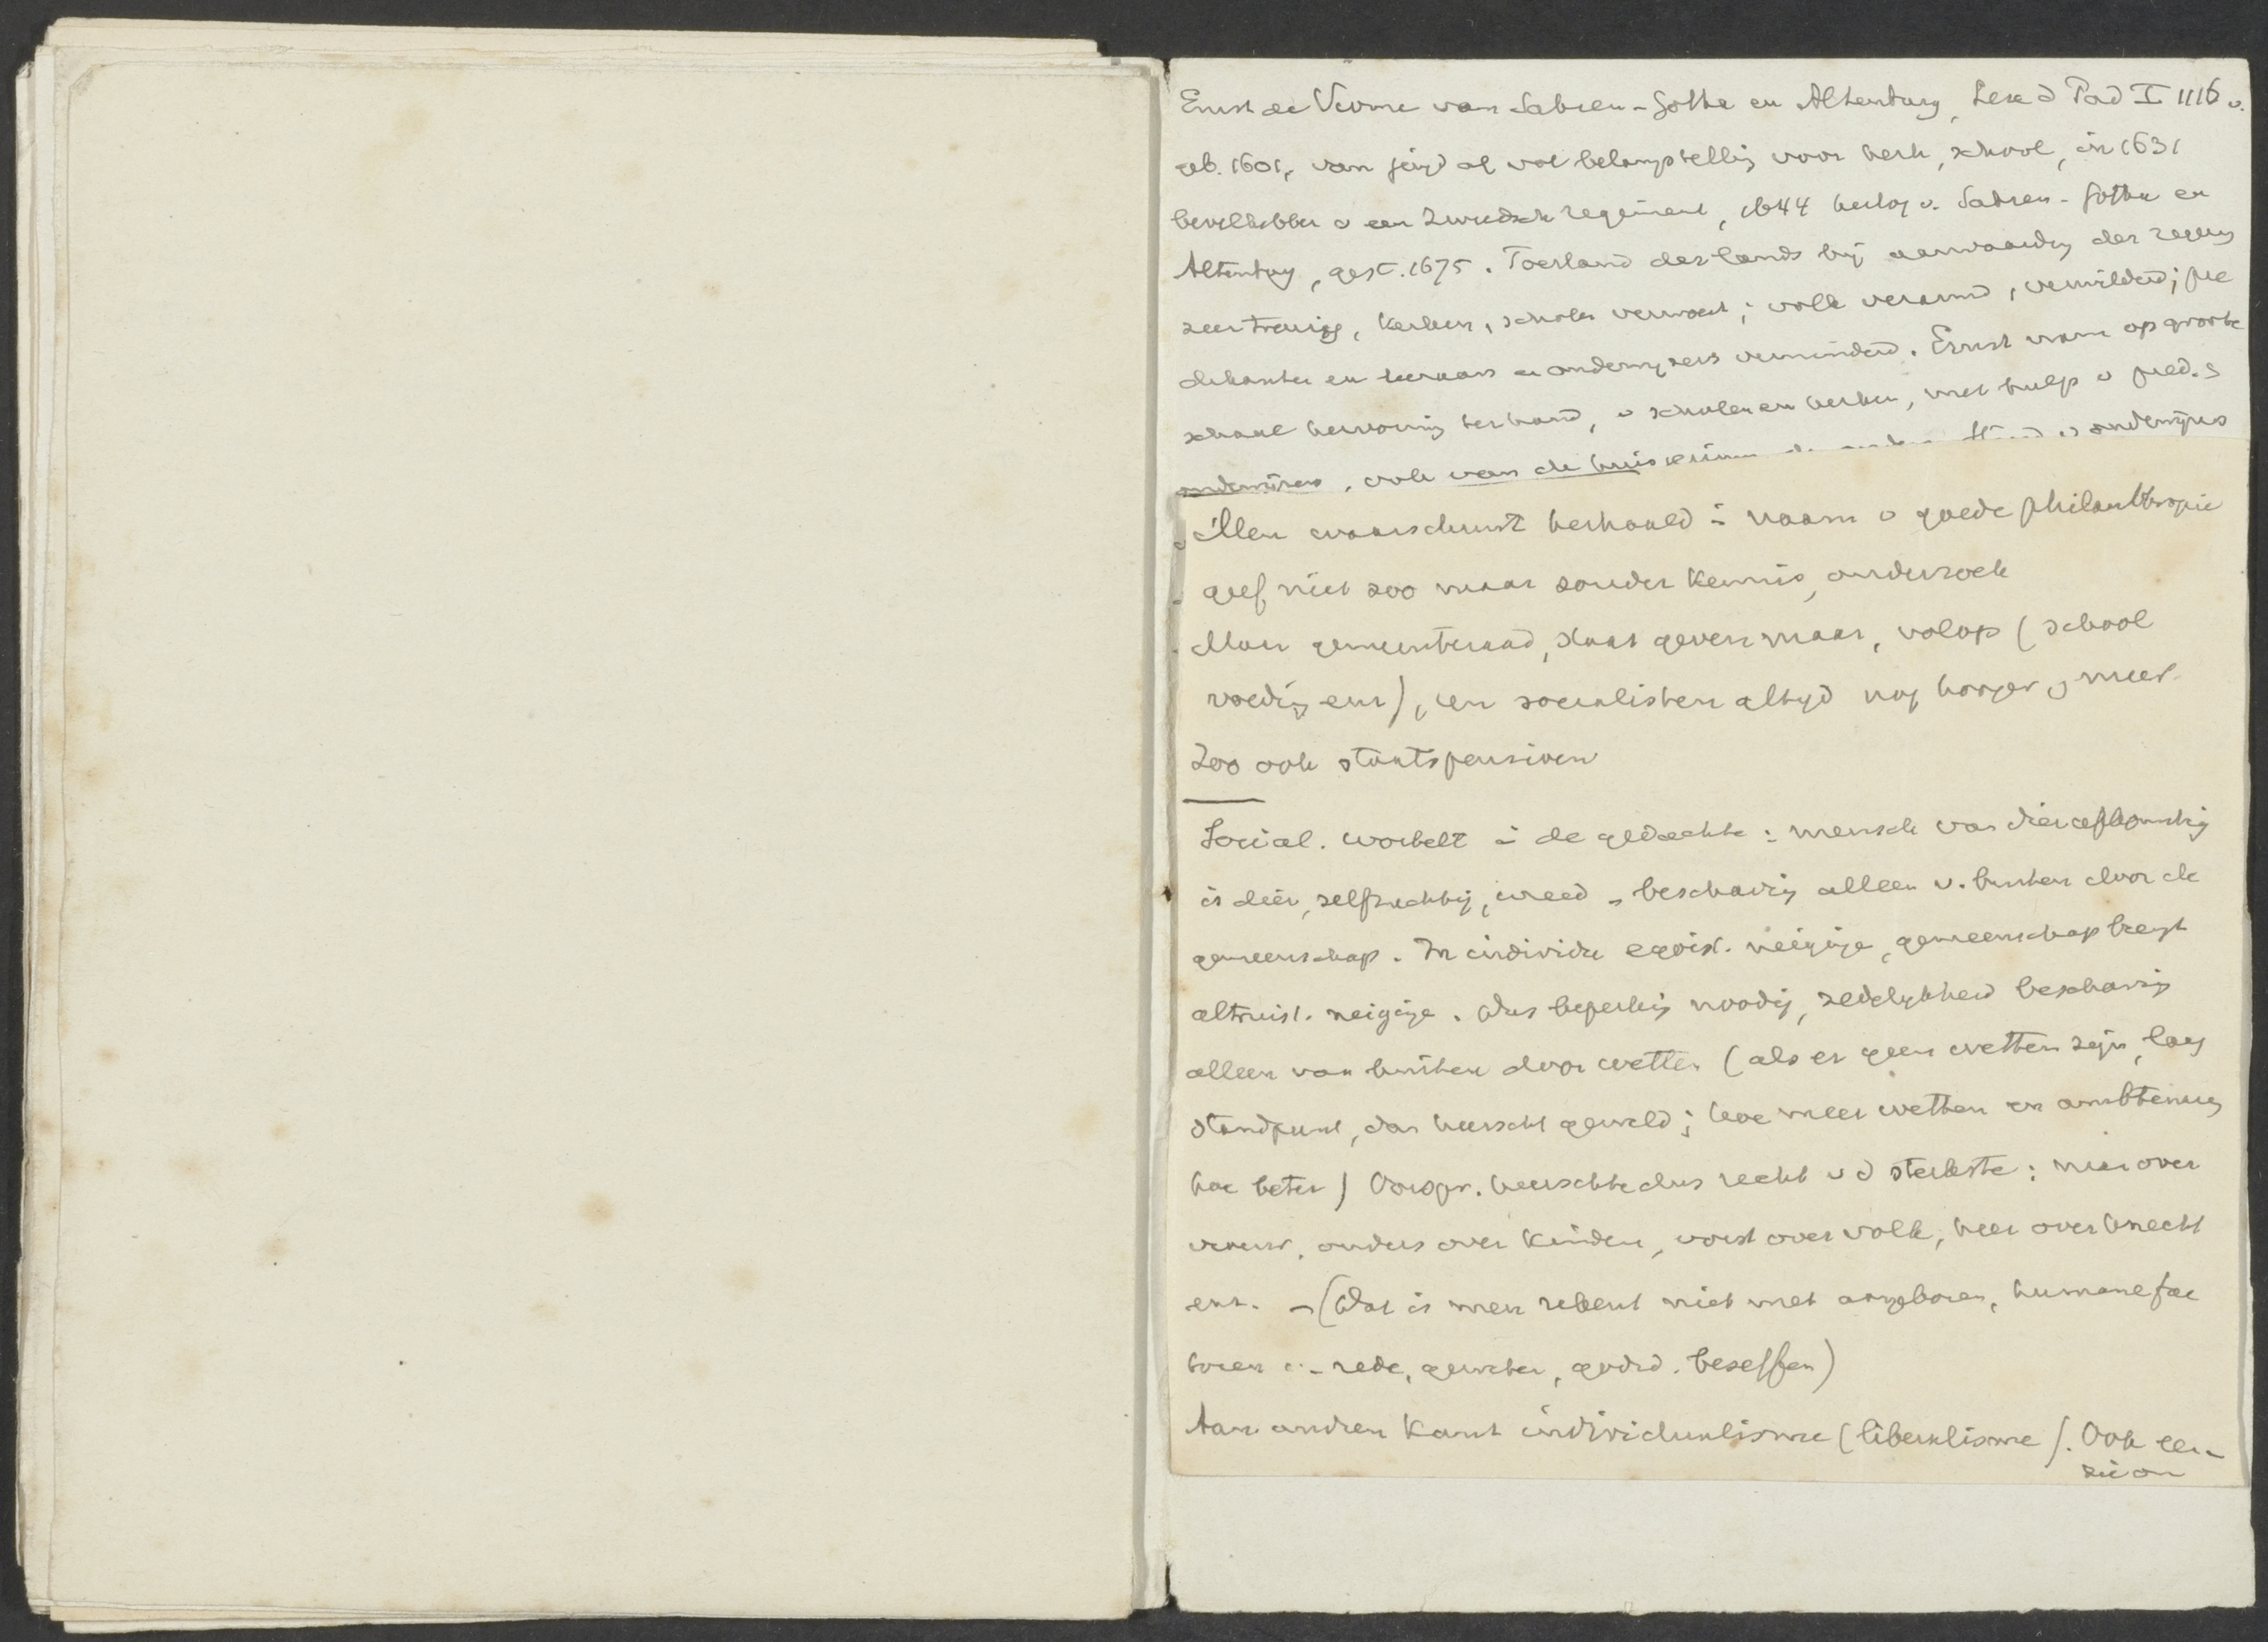 Ernst de Vrome van Saksen-Gotha en Altenburg, Rein I 1116 v.
geb. 1601, van jeugd af vol belangstelling voor kerk, school, in 1631
bevelhebber v een Zweedsch regiment, 1644 hertog v. Saksen-Gotha en
Altenburg, gest. 1675. Toestand des lands bij aanvaarding der regering
zeer treurig, kerken, scholen verwoest; volk verarmd, verwilderd; pre
dikanten en leraars en onderwijzers verminderd. Ernst nam op groote
schaal hervorming ter hand, v scholen en kerken, met hulp v pred. &
onderwijzers, ook van de
Men waarschuwt herhaald in naam v goede philanthropie
geef niet zoo maar zonder kennis, onderzoek
Maar gemeenteraad, staat geven maar, volop (school
voeding enz), en socialisten altijd nog hooger, meer
Zoo ook staatspensioen
Social. wortelt in de gedachte: mensch van dier afkomstig
is dier, zelfzuchtig, wreed - beschaving alleen v. buiten door de
gemeenschap. In individu egoist. neiginge, gemeenschap brengt
altruist. neiginge. Dus beperking noodig, zedelijkheid beschaving
alleen van buiten door wetten (als er geen wetten zijn, laag
standpunt, dan heerscht geweld; hoe meer wetten en ambtenaren
hoe beter) Oorspr. heerschte dus recht v d sterkste: man over
vrouw, ouders over kinderen, vorst over volk, heer over knecht
enz. - (Dat is men rekent niet met aangeboren, humane fac
toren - rede, geweten, godsd. beseffen)
Aan andren kant individualisme (liberalisme). Ook een-